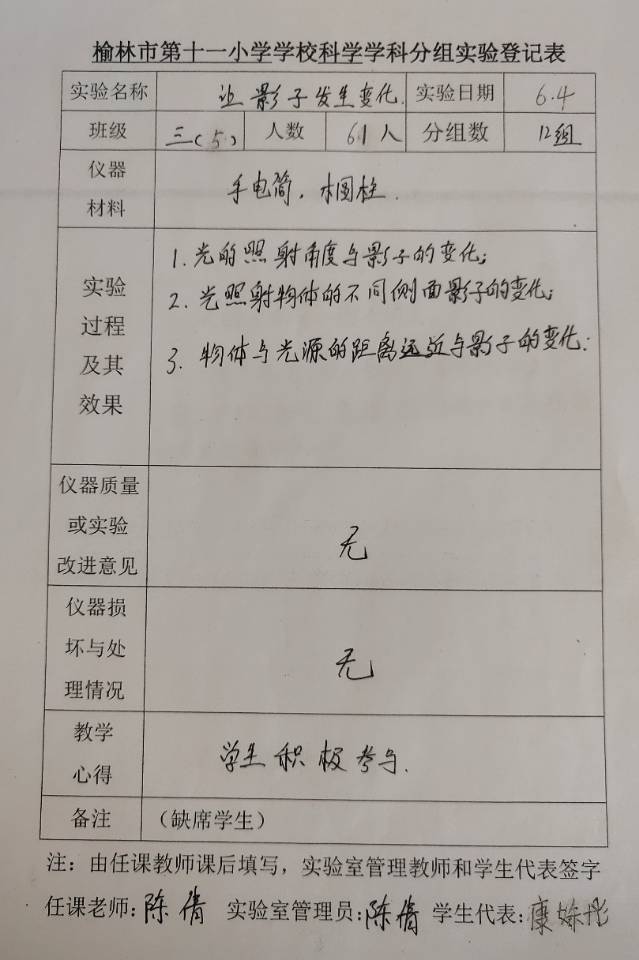 榆林市第十一小学学校科学学科分组实验登记表
实验名称 让影子发生变化. 实验日期 6.4
班级 三(5) 人数 61人 分组数 12组
仪器
材料
手电筒, 木圆柱.
实验
过程
及其
效果
1. 光的照射角度与影子的变化;
2. 光照射物体的不同侧面影子的变化;
3. 物体与光源的距离远近与影子的变化:
仪器质量
或实验
改进意见
无
仪器损
坏与处
理情况
无
教学
心得
学生积极参与.
备注 (缺席学生)
注：由任课教师课后填写，实验室管理教师和学生代表签字
任课老师:陈倩 实验室管理员:陈倩 学生代表:康